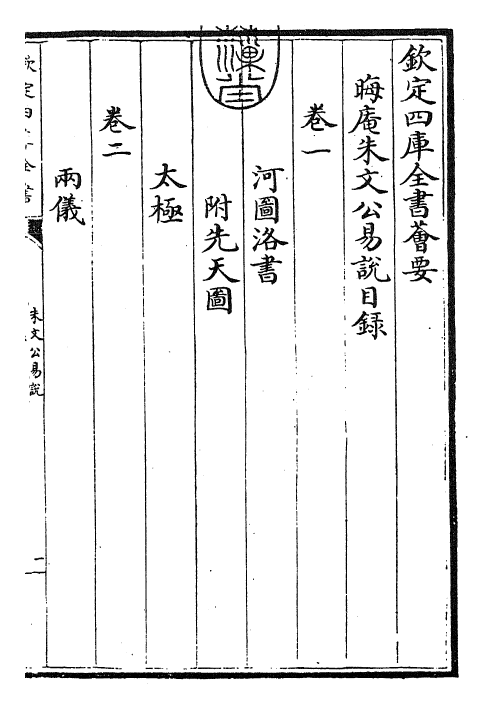 欽定四庫全書薈要
晦庵朱文公易說目錄
卷一
河圖洛書
附先天圖
太極
卷二
兩儀
朱文公易說
二